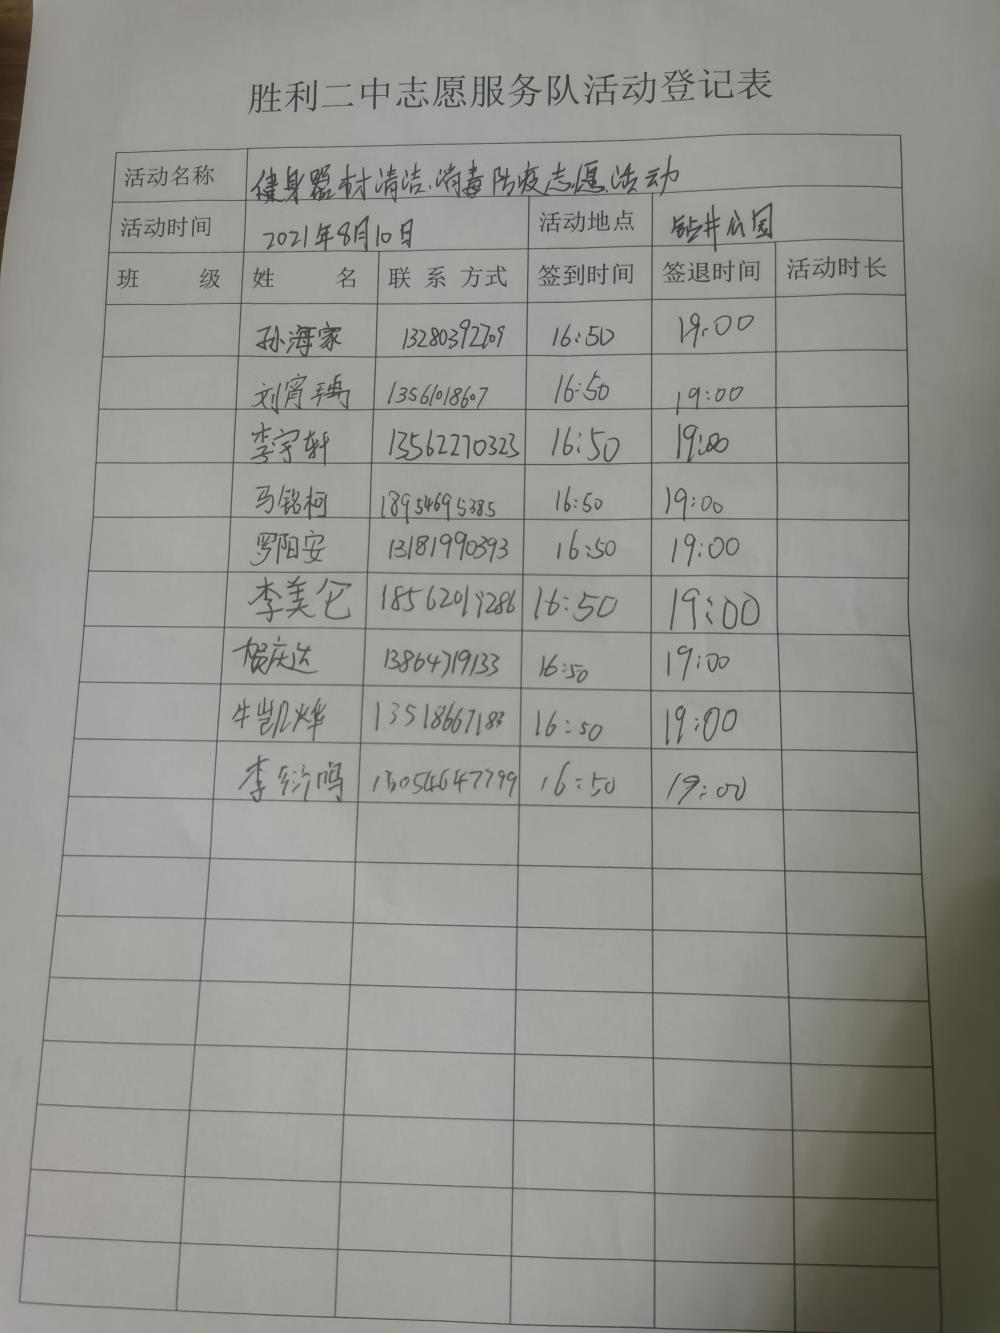 胜利二中志愿服务队活动登记表
活动名称 健身器材清洁、消毒防疫志愿活动
活动时间 2021年8月10日 活动地点 钻井公园
班 级 姓 名 联 系 方式 签到时间 签退时间 活动时长
孙海家 13280392709 16:50 19:00
刘宵 13561018607 16:50 19:00
李宇轩 13562270323 16:50 19:00
马铭柯 18954695385 16:50 19:00
罗阳安 13181990393 16:50 19:00
李美仑 18562019286 16:50 19:00
贺庆达 13864719133 16:50 19:00
牛凯烨 13518667183 16:50 19:00
李衍鸣 15054647799 16:50 19:00